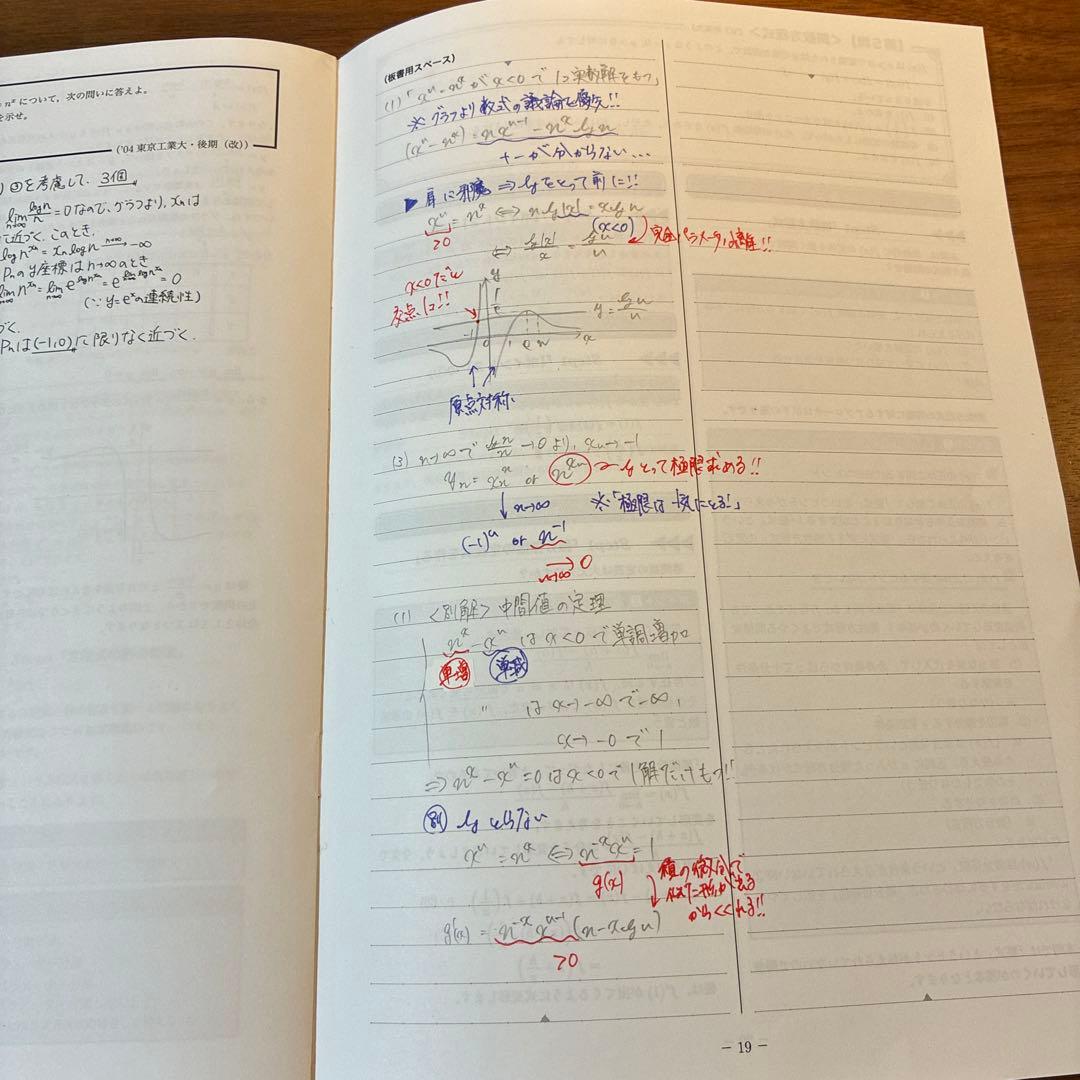 n^x について，次の問いに答えよ。
を示せ。
('04 東京工業大・後期（改）)
を考慮して、3個
lim n→∞ log n / n = 0 なので、グラフより、xn は
近づく. このとき.
log n^xn = xn log n → -∞ (n→∞)
Pn の y座標は n→∞ のとき
lim n→∞ n^xn = lim n→∞ e^{log n^xn} = 0
(∵ y=e^x の連続性)
づく.
Pn は (-1, 0) に限りなく近づく.
（板書用スペース）
(1)「x^n = n^x が x<0 で1つ実数解をもつ」
※グラフより数式の議論を優先!!
(x^n - n^x)' = nx^{n-1} - n^x log n
+-が分からない…
▶ 肩に邪魔 ⇒ log をとって前に!!
x^n = n^x ⇔ n log|x| = x log n
>0
(x<0)
完全パラメータ分離!!
⇔ log|x| / x = log n / n
x<0 だと
交点1コ!!
y
1/e
y = log n / n
-1 0 1 e n x
原点対称
(3) n→∞ で log n / n → 0 より, xn → -1
yn = xn^n or n^xn
log とって極限求める!!
↓ n→∞
※「極限は一気にとる!」
(-1)^n or n^-1
→ 0
n→∞
(1) <別解> 中間値の定理
n^x - x^n は x<0 で単調増加
単増 単減
〃 は x→-∞ で -∞,
x→-0 で 1
⇒ n^x - x^n = 0 は x<0 で1解だけもつ!!
別 log とらない
x^n = n^x ⇔ n^{-x} x^n = 1
g(x)
積の微分で
くくれる!!
g'(x) = n^{-x} x^{n-1} (n - x log n)
>0
- 19 -